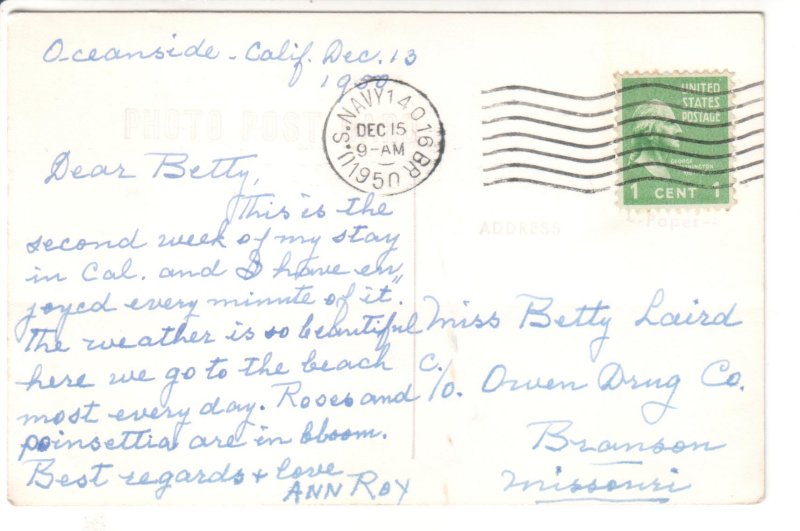 Oceanside - Calif. Dec. 13
1950
PHOTO POST
U.S. NAVY 14016 BR.
DEC 15
9-AM
1950
UNITED
STATES
POSTAGE
GEORGE
WASHINGTON
1 CENT 1
ADDRESS
Paper
Dear Betty,
This is the
second week of my stay
in Cal. and I have en"
joyed every minute of it".
The weather is so beautiful
here we go to the beach
most every day. Roses and
poinsettia are in bloom.
Best regards + love
ANN ROY
Miss Betty Laird
c/o. Owen Drug Co.
Branson
Missouri